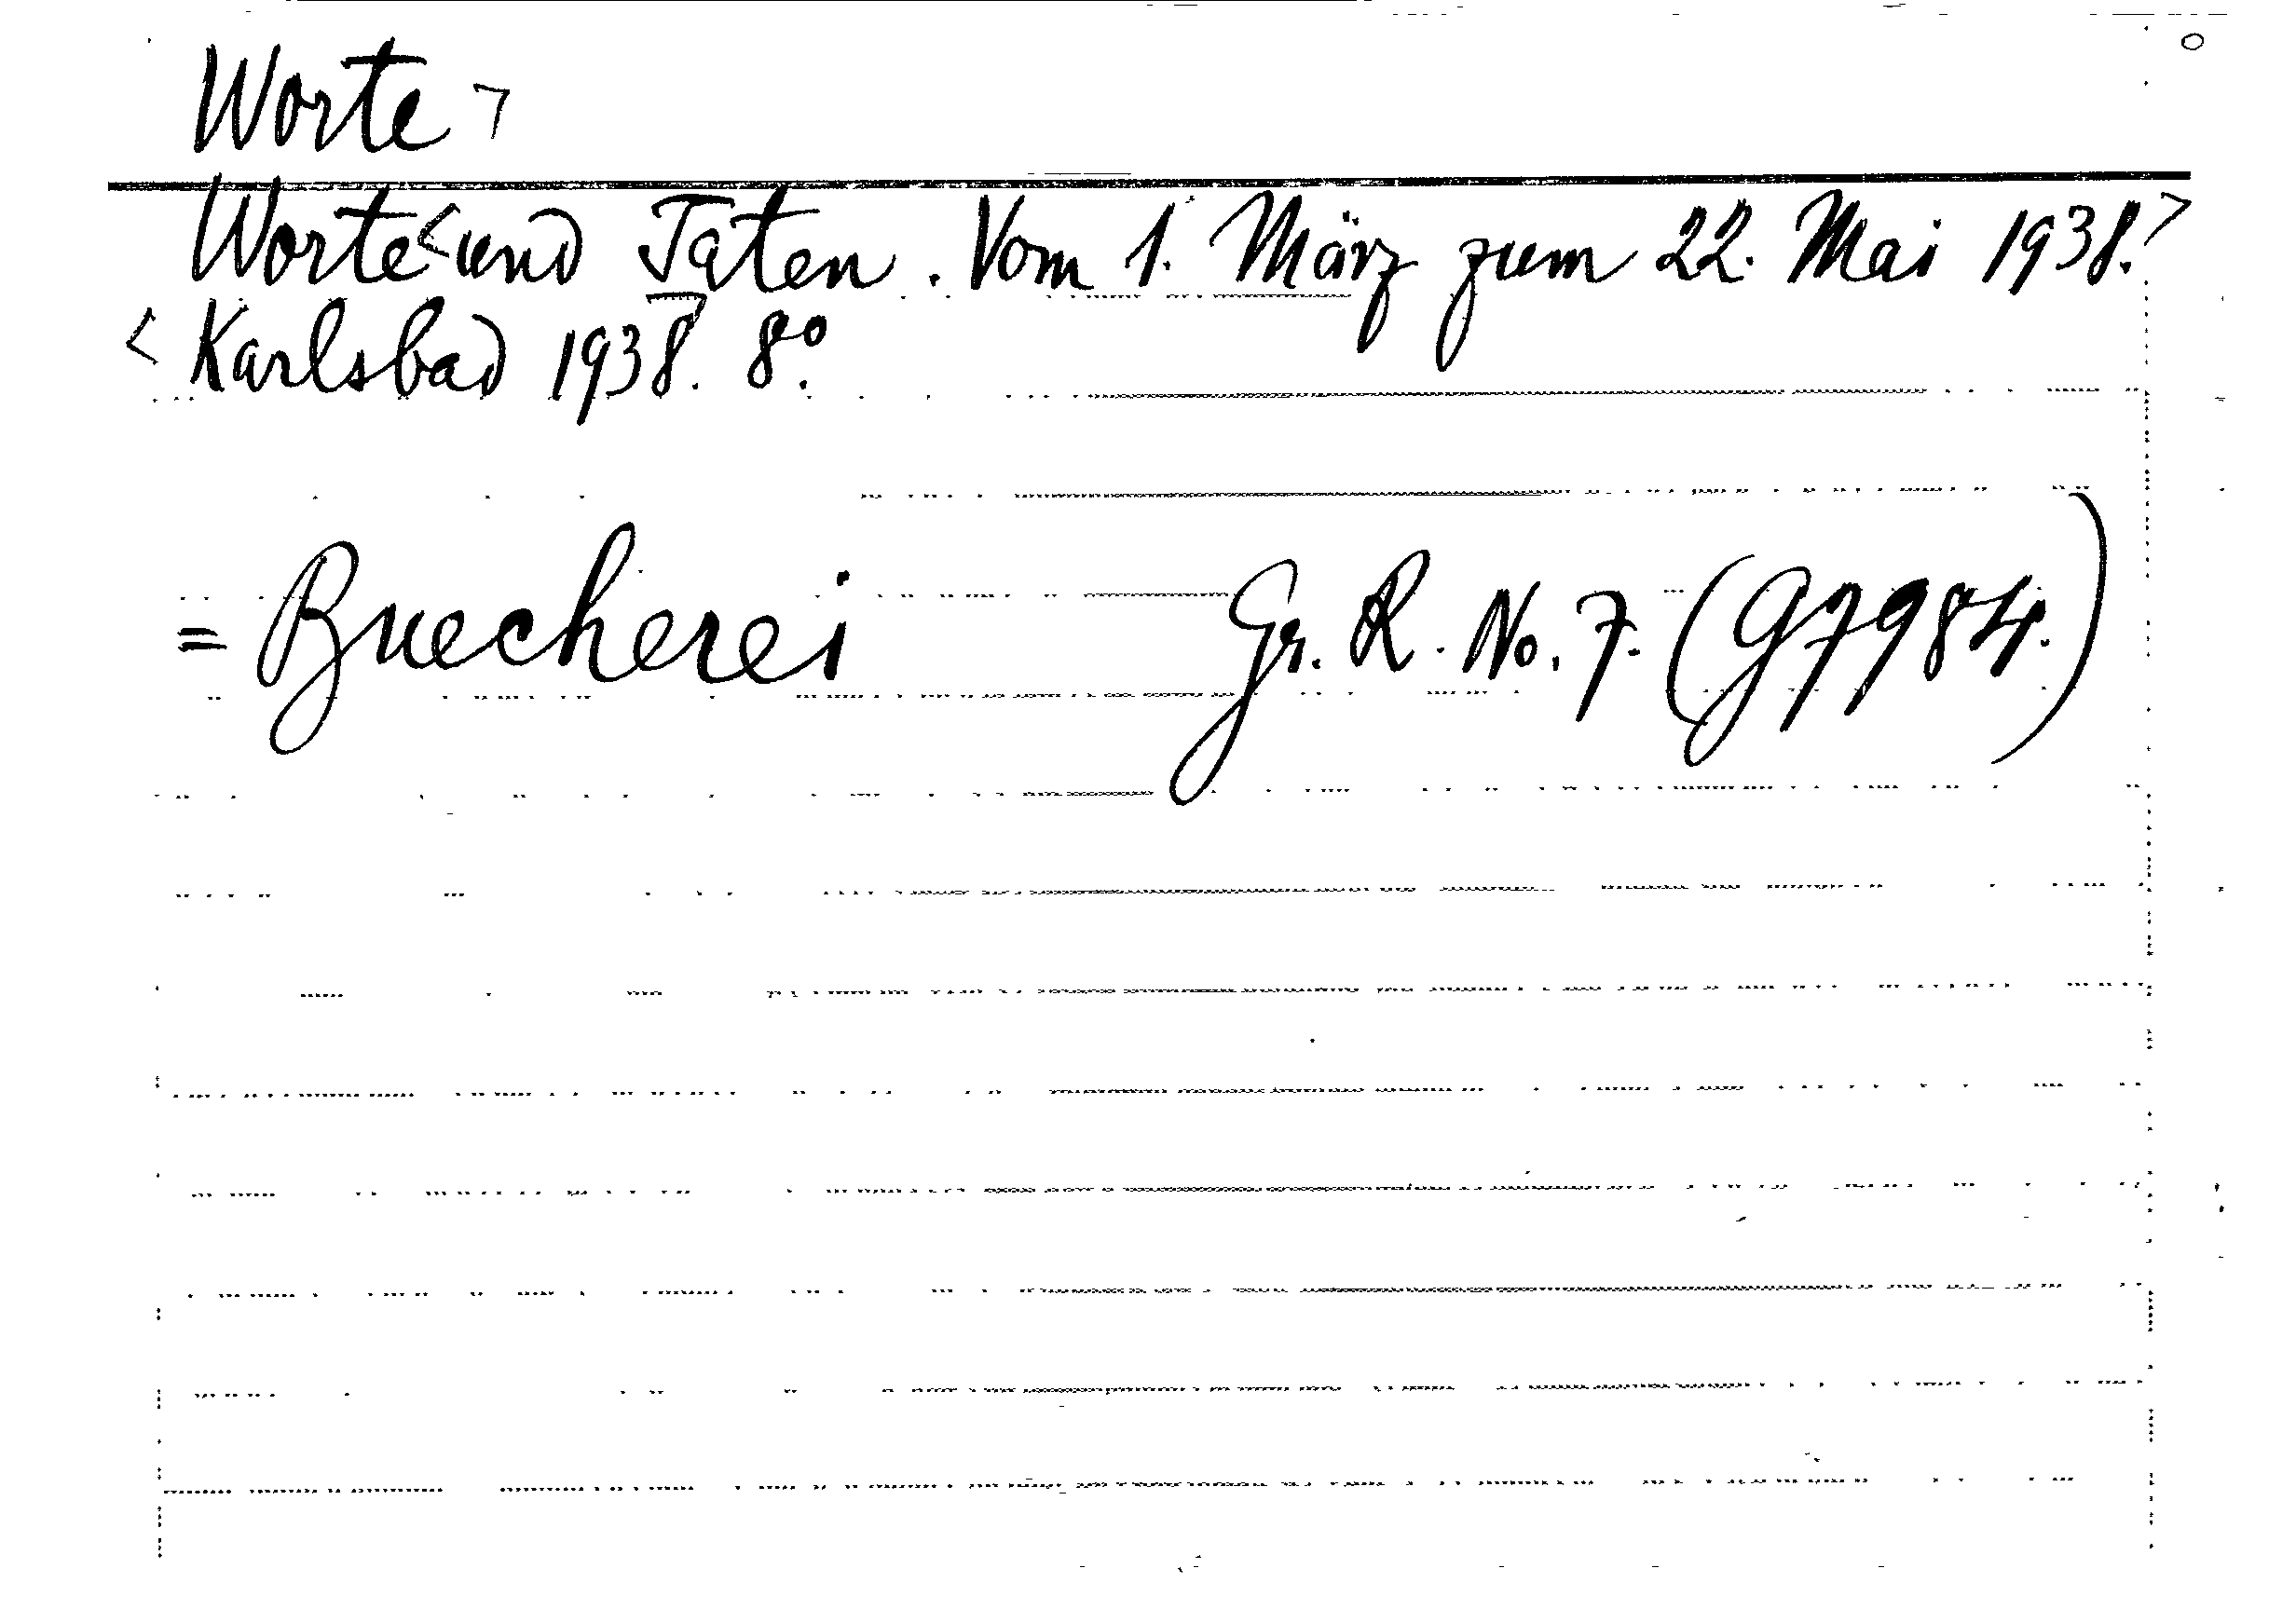 Worte ¬
Worte< und Taten. Vom 1. März zum 22. Mai 1938.>
< Karlsbad 1938. 8°.
= Buecherei Gr. R. No. 7. (G 7984.)